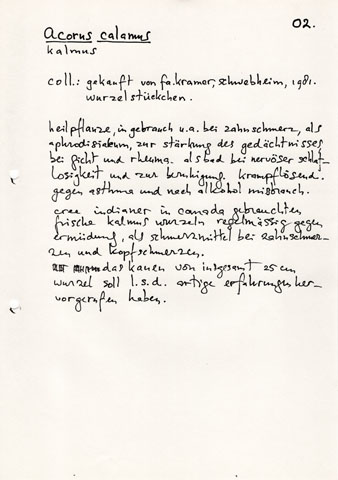 02.
Acorus calamus
kalmus
coll.: gekauft von fa. kramer, schwebheim, 1981.
wurzelstückchen.
heilpflanze, in gebrauch u.a. bei zahnschmerz, als
aphrodisiakum, zur stärkung des gedächtnisses
bei gicht und rheuma. als bad bei nervöser schlaf-
losigkeit und zur beruhigung. krampflösend.
gegen asthma und nach alkohol missbrauch.
cree indianer in canada gebrauchten
frische kalmus wurzeln regelmässig gegen
ermüdung, als schmerzmittel bei zahnschmer-
zen und kopfschmerzen.
das kauen von insgesamt 25 cm
wurzel soll l.s.d. artige erfahrungen her-
vorgerufen haben.